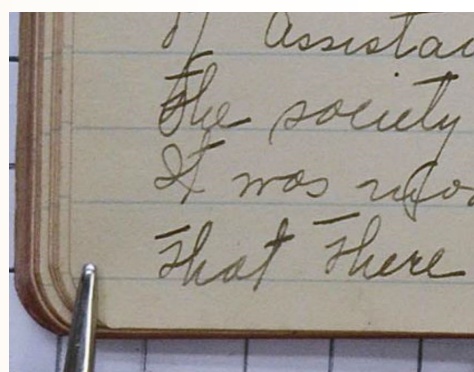 of assista
The society
It was
that there